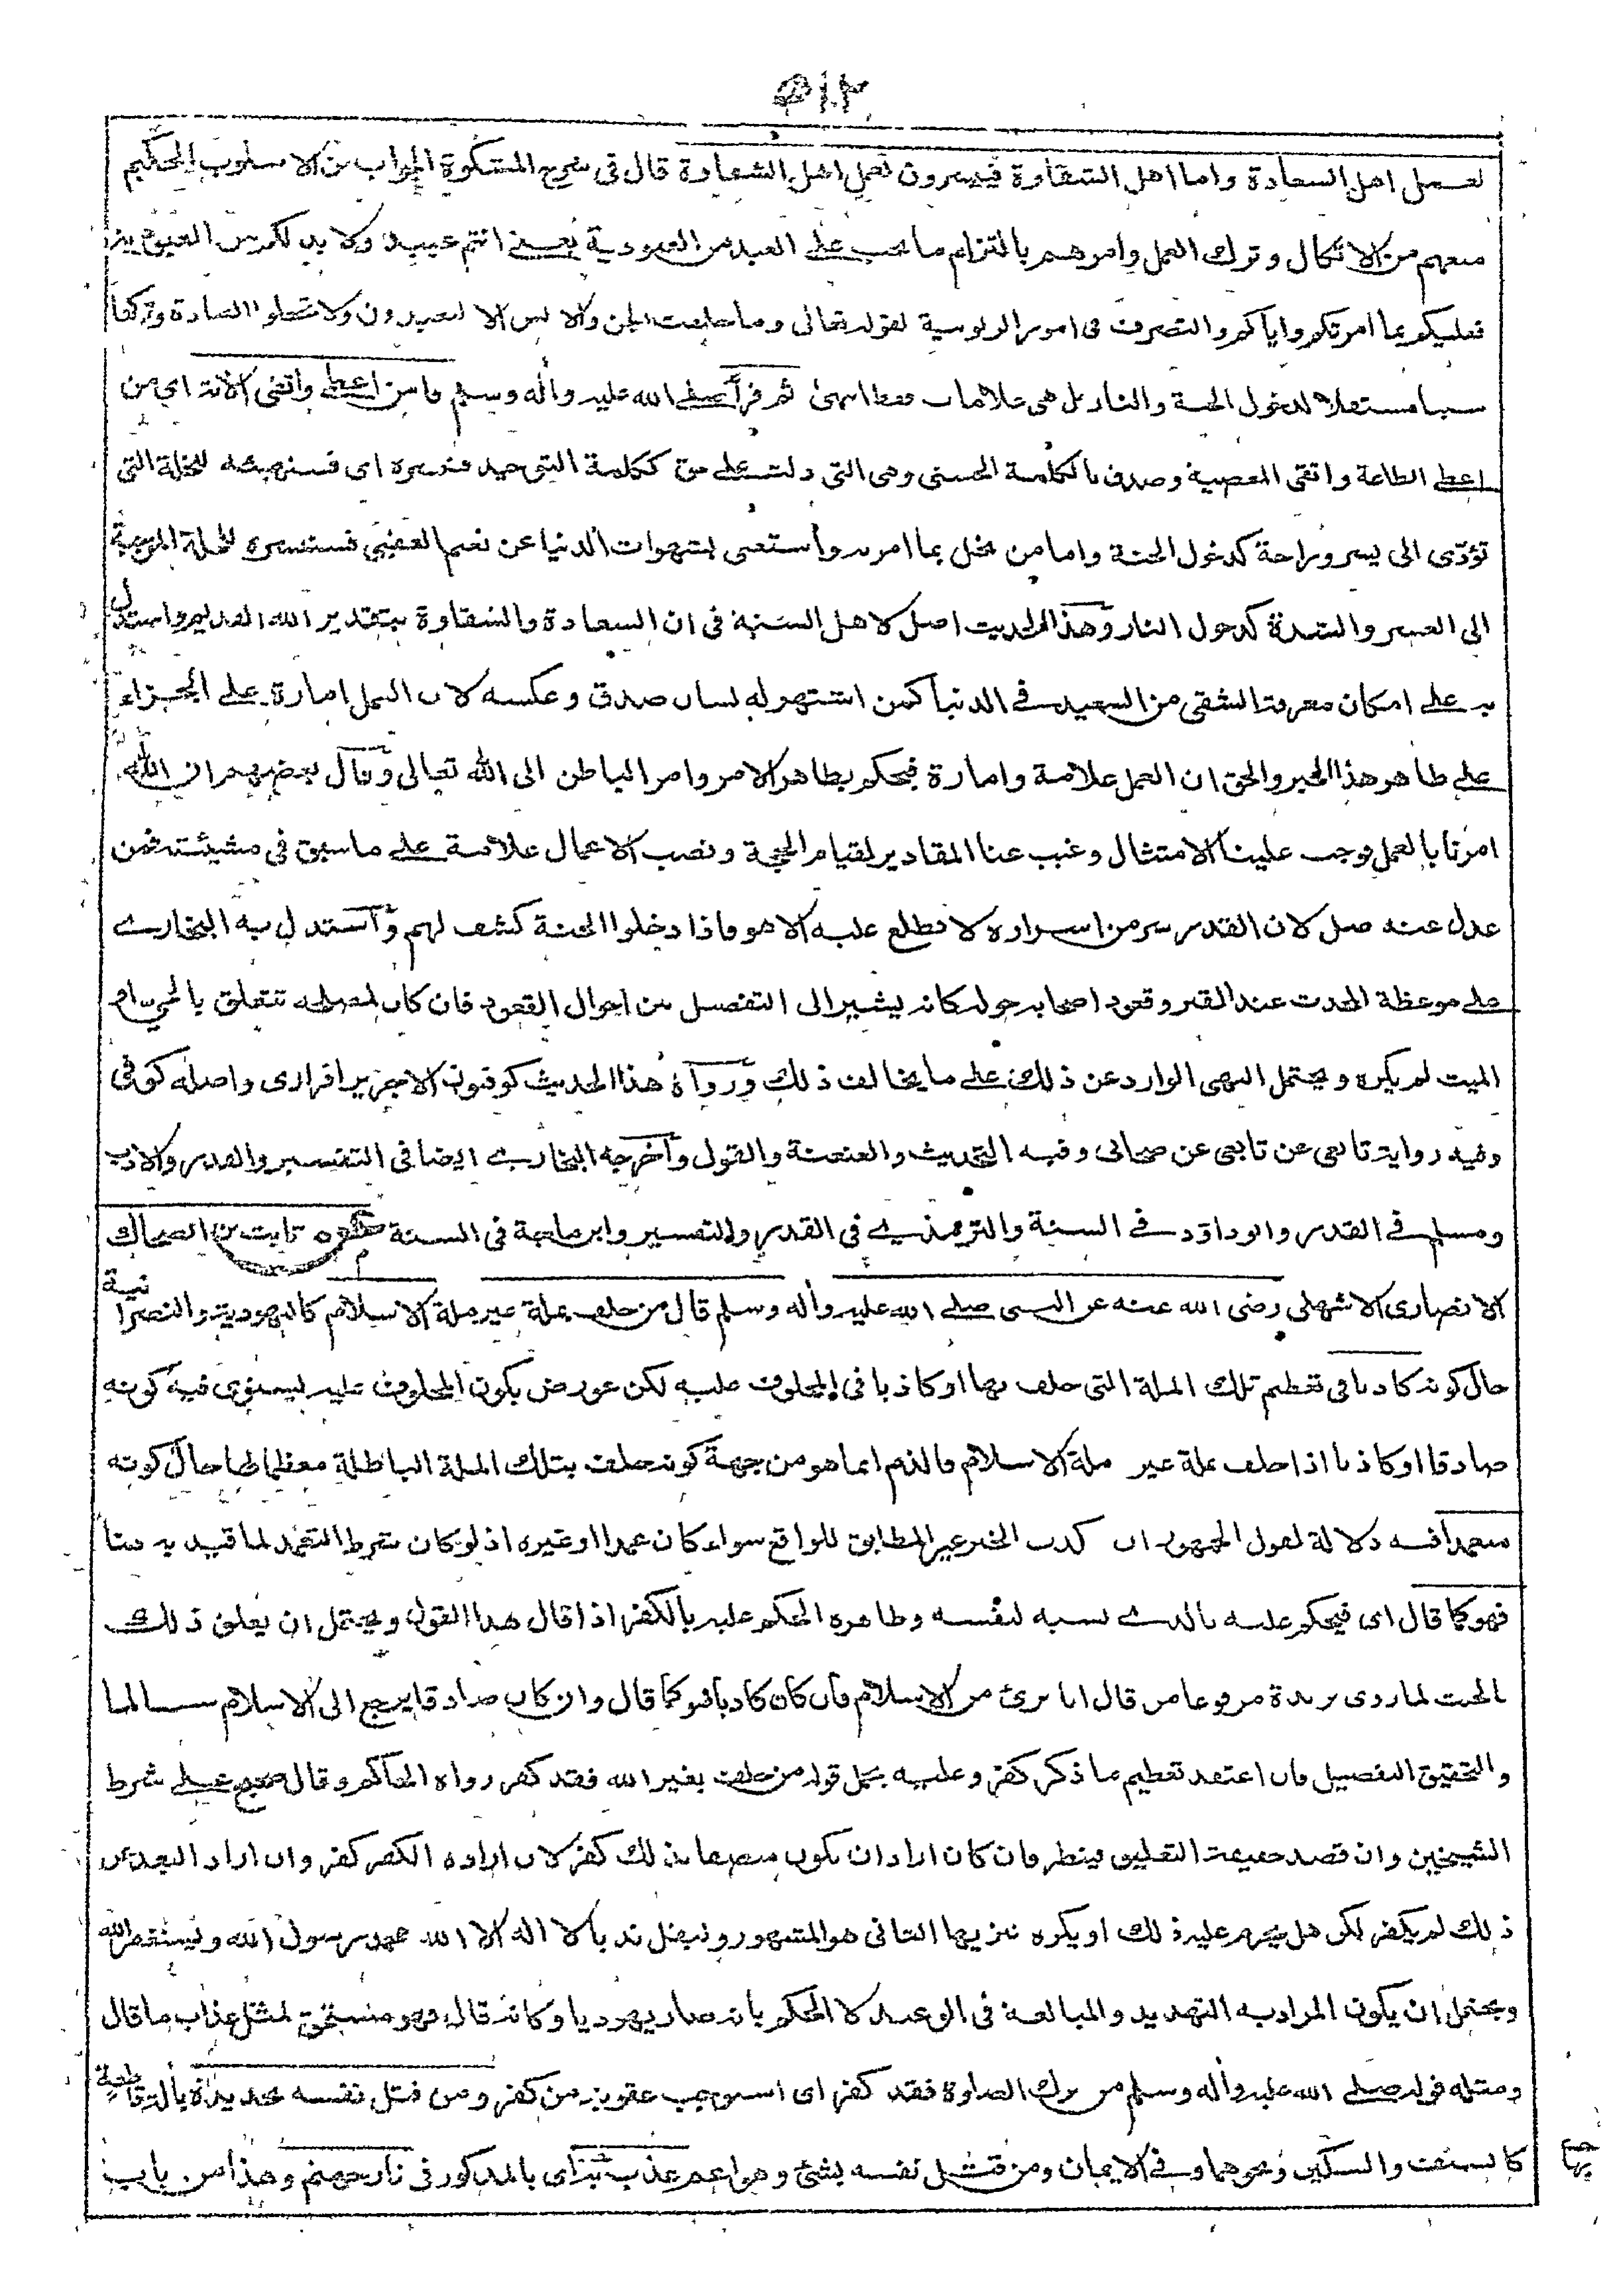 ٥١٢
لعمل اهل السعادة واما اهل الشقاوة فييسرون لعمل اهل الشقاوة قال فى شرح المشكوة الجواب من الاسلوب الحكيم
منعهم من الاتكال وترك العمل وامرهم بالتزام ما يجب على العبد من العبودية يعنى انتم عبيد ولا بد لكم من العبودية
فعليكم بما امرتكم واياكم والتصرف فى امور الربوبية لقوله تعالى وما خلقت الجن والانس الا ليعبدون ولا تجعلوا العبادة وتركها
سببا مستقلا لدخول الجنة والنار بل هى علامات فقط انتهى ثم قرأ صلى الله عليه وأله وسلم فاما من اعطى واتقى الأية اى من
اعطى الطاعة واتقى المعصية وصدق بالكلمة الحسنى وهى التى دلت على حق ككلمة التوحيد فنيسره اى فسنهيئه للخلة التى
تؤدى الى يسر وراحة كدخول الجنة واما من بخل بما امر به واستغنى بشهوات الدنيا عن نعيم العقبى فسنيسره للخلة المؤدية
الى العسر والشدة كدخول النار وهذا الحديث اصل لاهل السنة فى ان السعادة والشقاوة بتقدير الله القديم واستدل
به على امكان معرفة الشقى من السعيد فى الدنيا كمن اشتهر له لسان صدق وعكسه لان العمل امارة على الجزاء
على ظاهر هذا الخبر والحق ان العمل علامة وامارة فيحكم بظاهر الامر وامر الباطن الى الله تعالى وقال بعضهم ان الله
امرنا بالعمل فوجب علينا الامتثال وغيب عنا المقادير لقيام الحجة ونصب الاعمال علامة على ما سبق فى مشيئته فمن
عدل عنه ضل لان القدر سر من اسراره لا يطلع عليه الا هو فاذا دخلوا الجنة كشف لهم واستدل به البخارى
على موعظة المحدث عند القبر وقعود اصحابه حوله كانه يشير الى التفصيل من احوال القعود فان كان لمصلحة تتعلق بالحى او
الميت لم يكره ويحتمل النهى الوارد عن ذلك على ما يخالف ذلك ورواة هذا الحديث كوفيون الا جرير افرازى واصله كوفى
وفيه رواية تابعى عن تابعى عن صحابى وفيه التحديث والعنعنة والقول واخرجه البخارى ايضا فى التفسير والقدر والادب
ومسلم فى القدر وابو داود فى السنة والترمذى فى القدر والتفسير وابن ماجة فى السنة ثابت بن الضحاك
الانصارى الاشهلى رضى الله عنه عن النبى صلى الله عليه وأله وسلم قال من حلف بملة غير ملة الاسلام كاليهودية والنصرانية
حال كونه كاذبا فى تعظيم تلك الملة التى حلف بها او كاذبا فى المحلوف عليه لكن عورض بكون المحلوف عليه يستوى فيه كونه
صادقا او كاذبا اذا حلف بملة غير ملة الاسلام فالذم انما هو من جهة كونه حلف بتلك الملة الباطلة معظما لها حال كونه
متعمدا فيه دلالة لقول الجمهور ان كذب الخبر غير المطابق للواقع سواء كان عمدا او غيره اذ لو كان شرط التعمد لما قيد به هنا
فهو كما قال اى فيحكم عليه بالذى نسبه لنفسه وظاهره الحكم عليه بالكفر اذا قال هذا القول ويحتمل ان يعلق ذلك
بالحنث لما روى بريدة مرفوعا من قال انا برئ من الاسلام فان كان كاذبا فهو كما قال وان كان صادقا يرجع الى الاسلام سالما
والتحقيق التفصيل فان اعتقد تعظيم ما ذكر كفر وعليه يحمل قوله من حلف بغير الله فقد كفر رواه الحاكم وقال صحيح على شرط
الشيخين وان قصد حقيقة التعليق فينظر فان كان اراد ان يكون متصفا بذلك كفر لان ارادة الكفر كفر وان اراد البعد عن
ذلك لم يكفر لكن هل يحرم عليه ذلك او يكره تنزيها الثانى هو المشهور وليقل ندبا لا اله الا الله محمد رسول الله ويستغفر الله
ويحتمل ان يكون المراد به التهديد والمبالغة فى الوعيد لا الحكم بانه صار يهوديا وكانه قال فهو مستحق لمثل عذاب ما قال
ومثله قوله صلى الله عليه وأله وسلم من ترك الصلوة فقد كفر اى استوجب عقوبة من كفر ومن قتل نفسه بحديدة بألة قاطعة
كالسيف والسكين ونحوهما وفى الايمان ومن قتل نفسه بشئ وهو اعم عذب به اى بالمذكور فى نار جهنم وهذا من باب